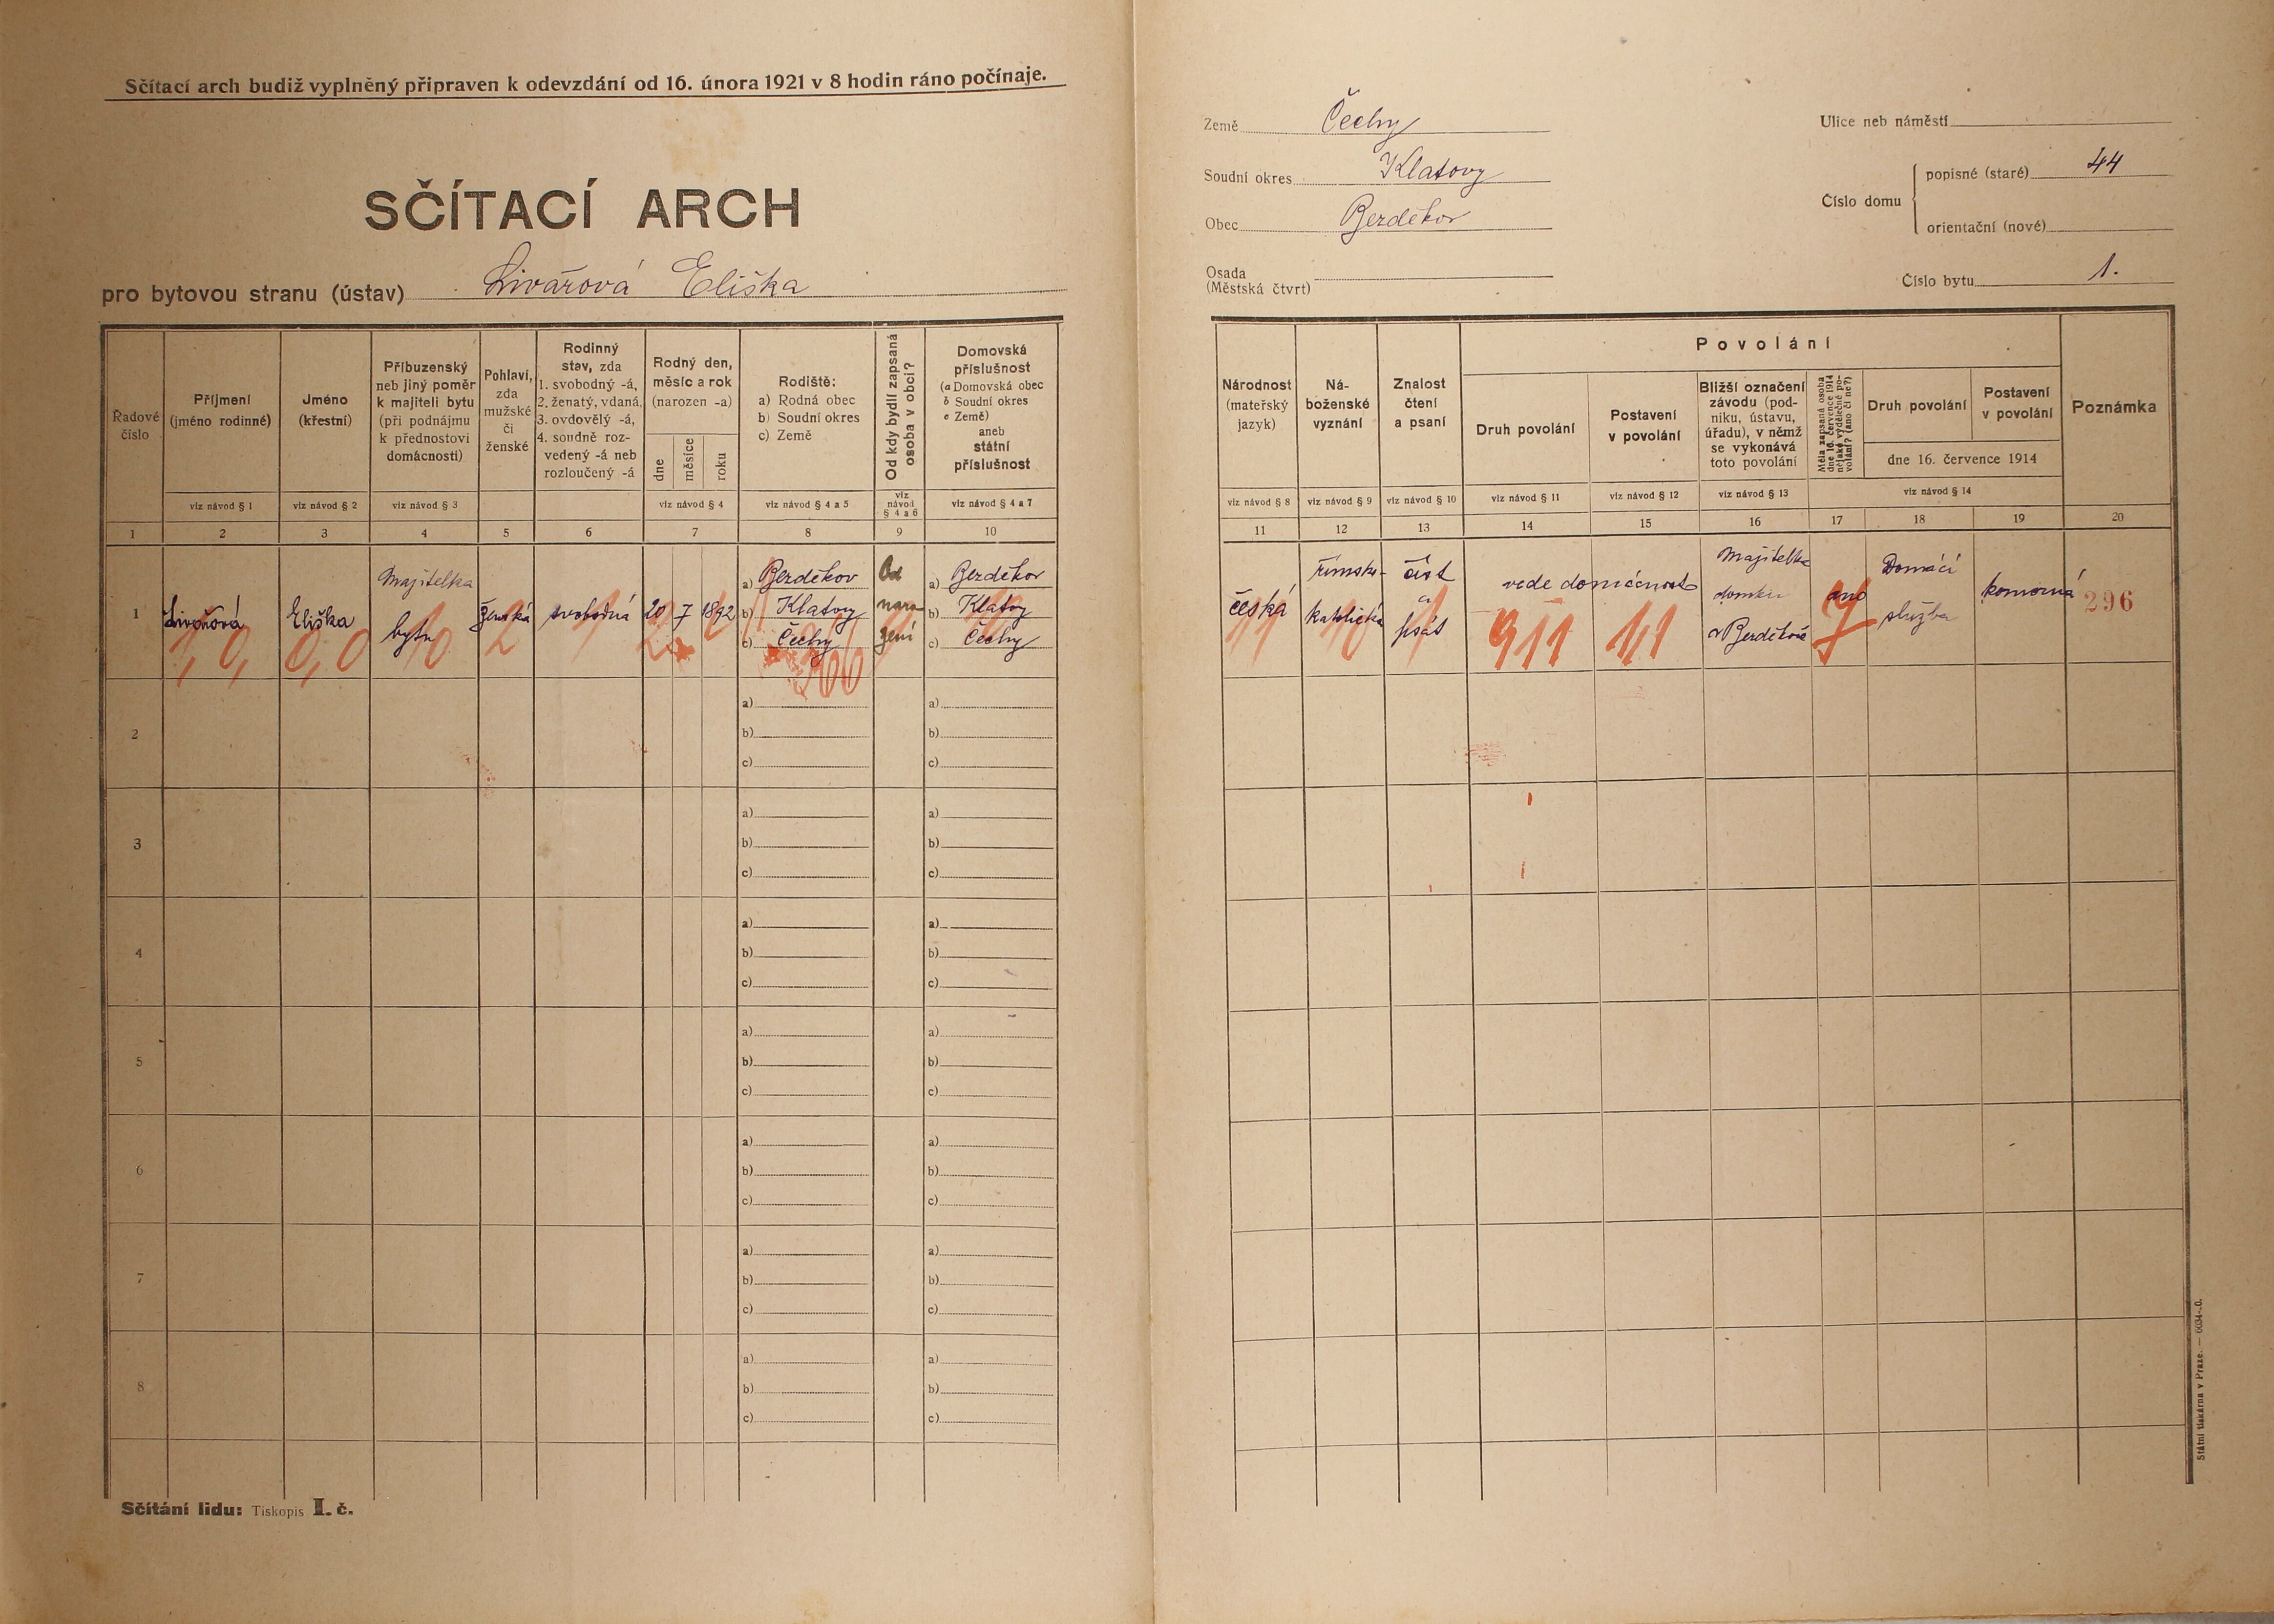 Sčítací arch budiž vyplněný připraven k odevzdání od 16. února 1921 v 8 hodin ráno počínaje.
SČÍTACÍ ARCH
pro bytovou stranu (ústav) Livařová Eliška
Země Čechy
Soudní okres Klatovy
Obec Bezděkov
Osada
(Městská čtvrt)
Ulice neb náměstí
Číslo domu
popisné (staré) 44
orientační (nové)
Číslo bytu 1.
Řadové číslo
Příjmení (jméno rodinné)
Jméno (křestní)
Příbuzenský neb jiný poměr k majiteli bytu (při podnájmu k přednostovi domácnosti)
Pohlaví, zda mužské či ženské
Rodinný stav, zda 1. svobodný -á, 2. ženatý, vdaná, 3. ovdovělý -á, 4. soudně rozvedený -á neb rozloučený -á
Rodný den, měsíc a rok (narozen -a)
dne měsíce roku
Rodiště: a) Rodná obec b) Soudní okres c) Země
Od kdy bydlí zapsaná osoba v obci?
Domovská příslušnost (a Domovská obec b Soudní okres c Země) aneb státní příslušnost
viz návod § 1 viz návod § 2 viz návod § 3 viz návod § 4 viz návod § 4 a 5 viz návod § 4 a 6 viz návod § 4 a 7
1 2 3 4 5 6 7 8 9 10
Národnost (mateřský jazyk)
Náboženské vyznání
Znalost čtení a psaní
Povolání
Druh povolání
Postavení v povolání
Bližší označení závodu (podniku, ústavu, úřadu), v němž se vykonává toto povolání
Měla zapsaná osoba dne 16. července 1914 nějaké výdělečné povolání? (ano či ne?)
Druh povolání
Postavení v povolání
dne 16. července 1914
Poznámka
viz návod § 8 viz návod § 9 viz návod § 10 viz návod § 11 viz návod § 12 viz návod § 13 viz návod § 14
11 12 13 14 15 16 17 18 19 20
1 Livařová Eliška Majitelka bytu ženská svobodná 20 7 1892
a) Bezděkov
b) Klatovy
c) Čechy
Od naro zení
a) Bezděkov
b) Klatovy
c) Čechy
česká římsko-katolická číst a psát vede domácnost Majitelka domku v Bezděkově ano Domácí služba komorná 296
1,0, 0,0 10 2 1 566
11 10 1 911 11 7
2 a) b) c) a) b) c)
3 a) b) c) a) b) c)
4 a) b) c) a) b) c)
5 a) b) c) a) b) c)
6 a) b) c) a) b) c)
7 a) b) c) a) b) c)
8 a) b) c) a) b) c)
Sčítání lidu: Tiskopis I. č.
Státní tiskárna v Praze. — 6034-20.